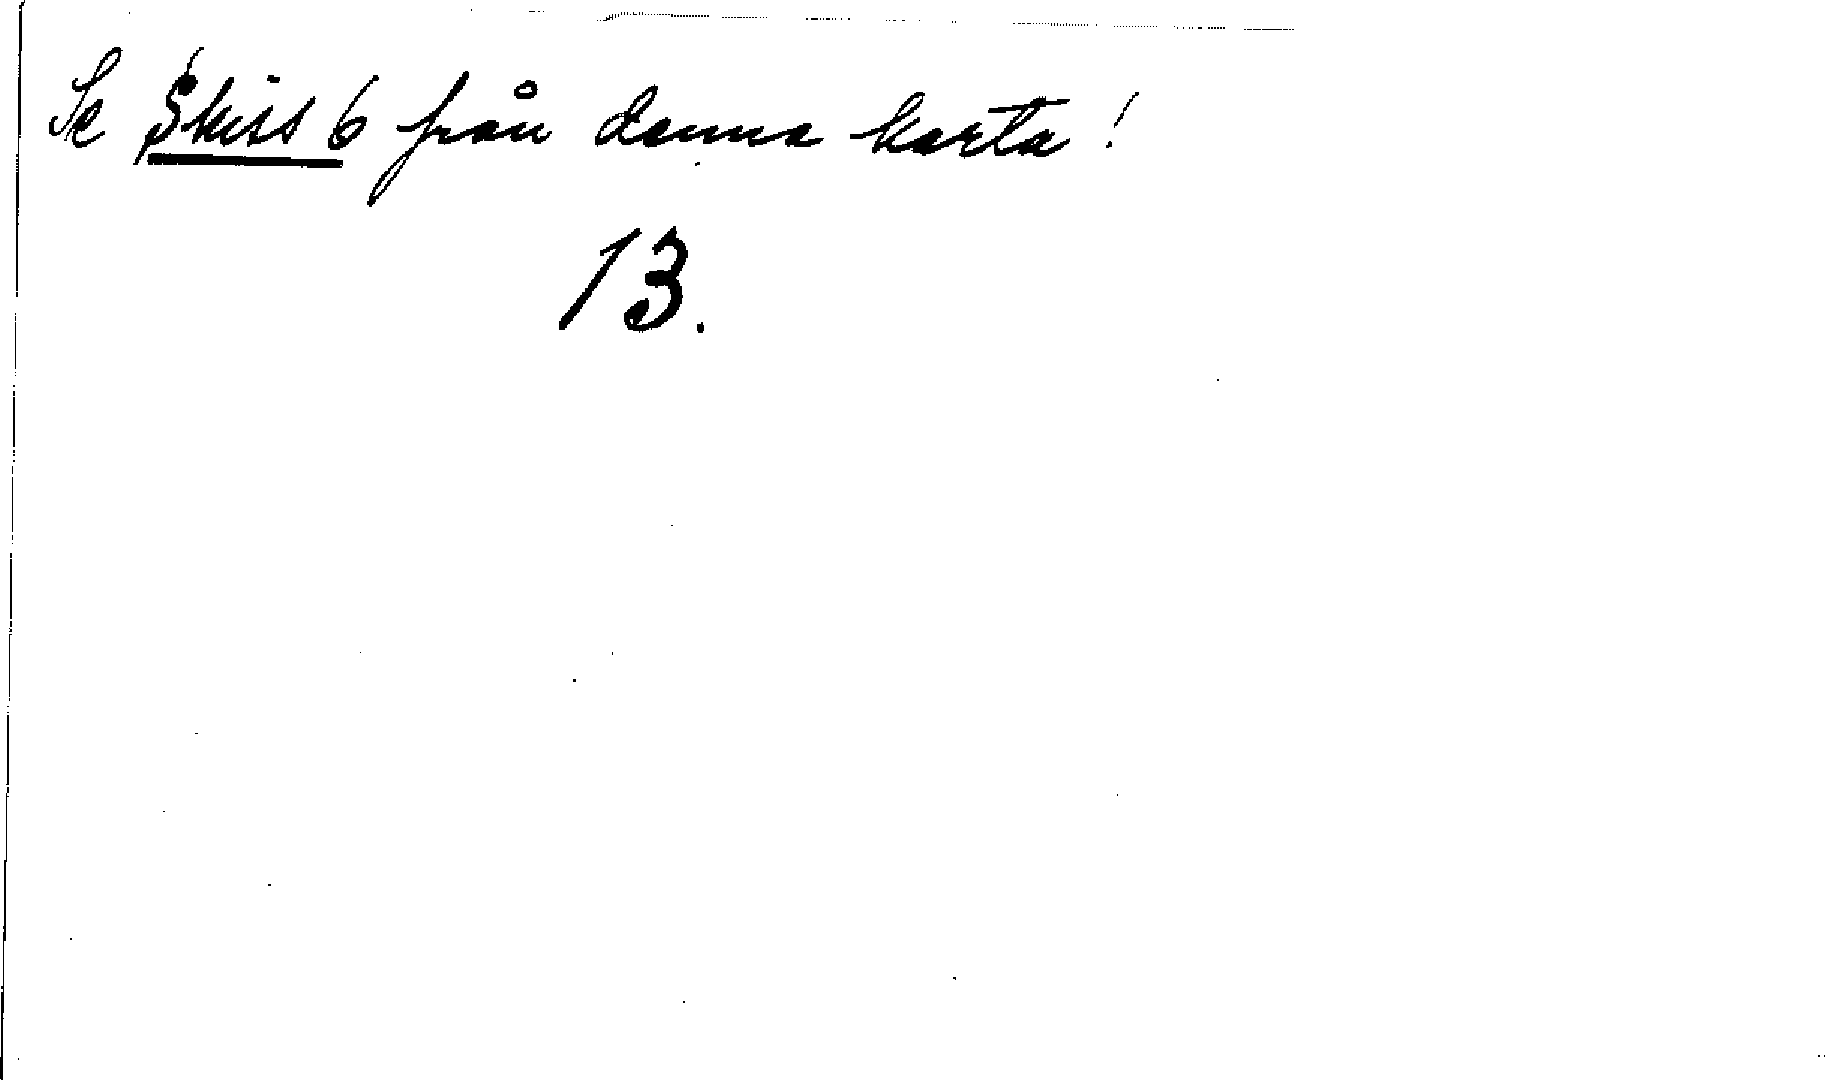 Se Skiss 6 från denna karta!
13.